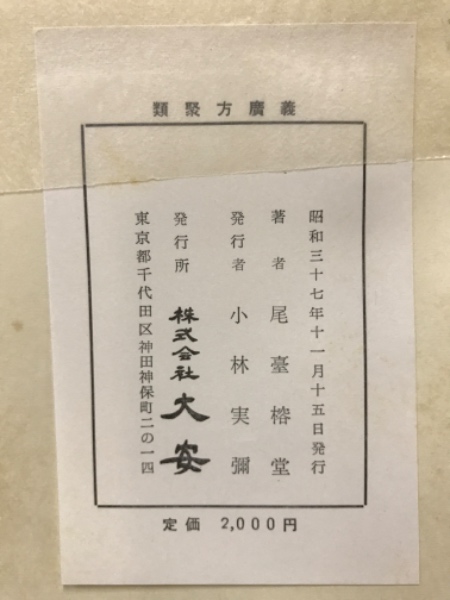 類聚方廣義
昭和三十七年十一月十五日発行
著者 尾臺榕堂
発行者 小林実彌
発行所 株式会社大安
東京都千代田区神田神保町二の一四
定価 2,000円